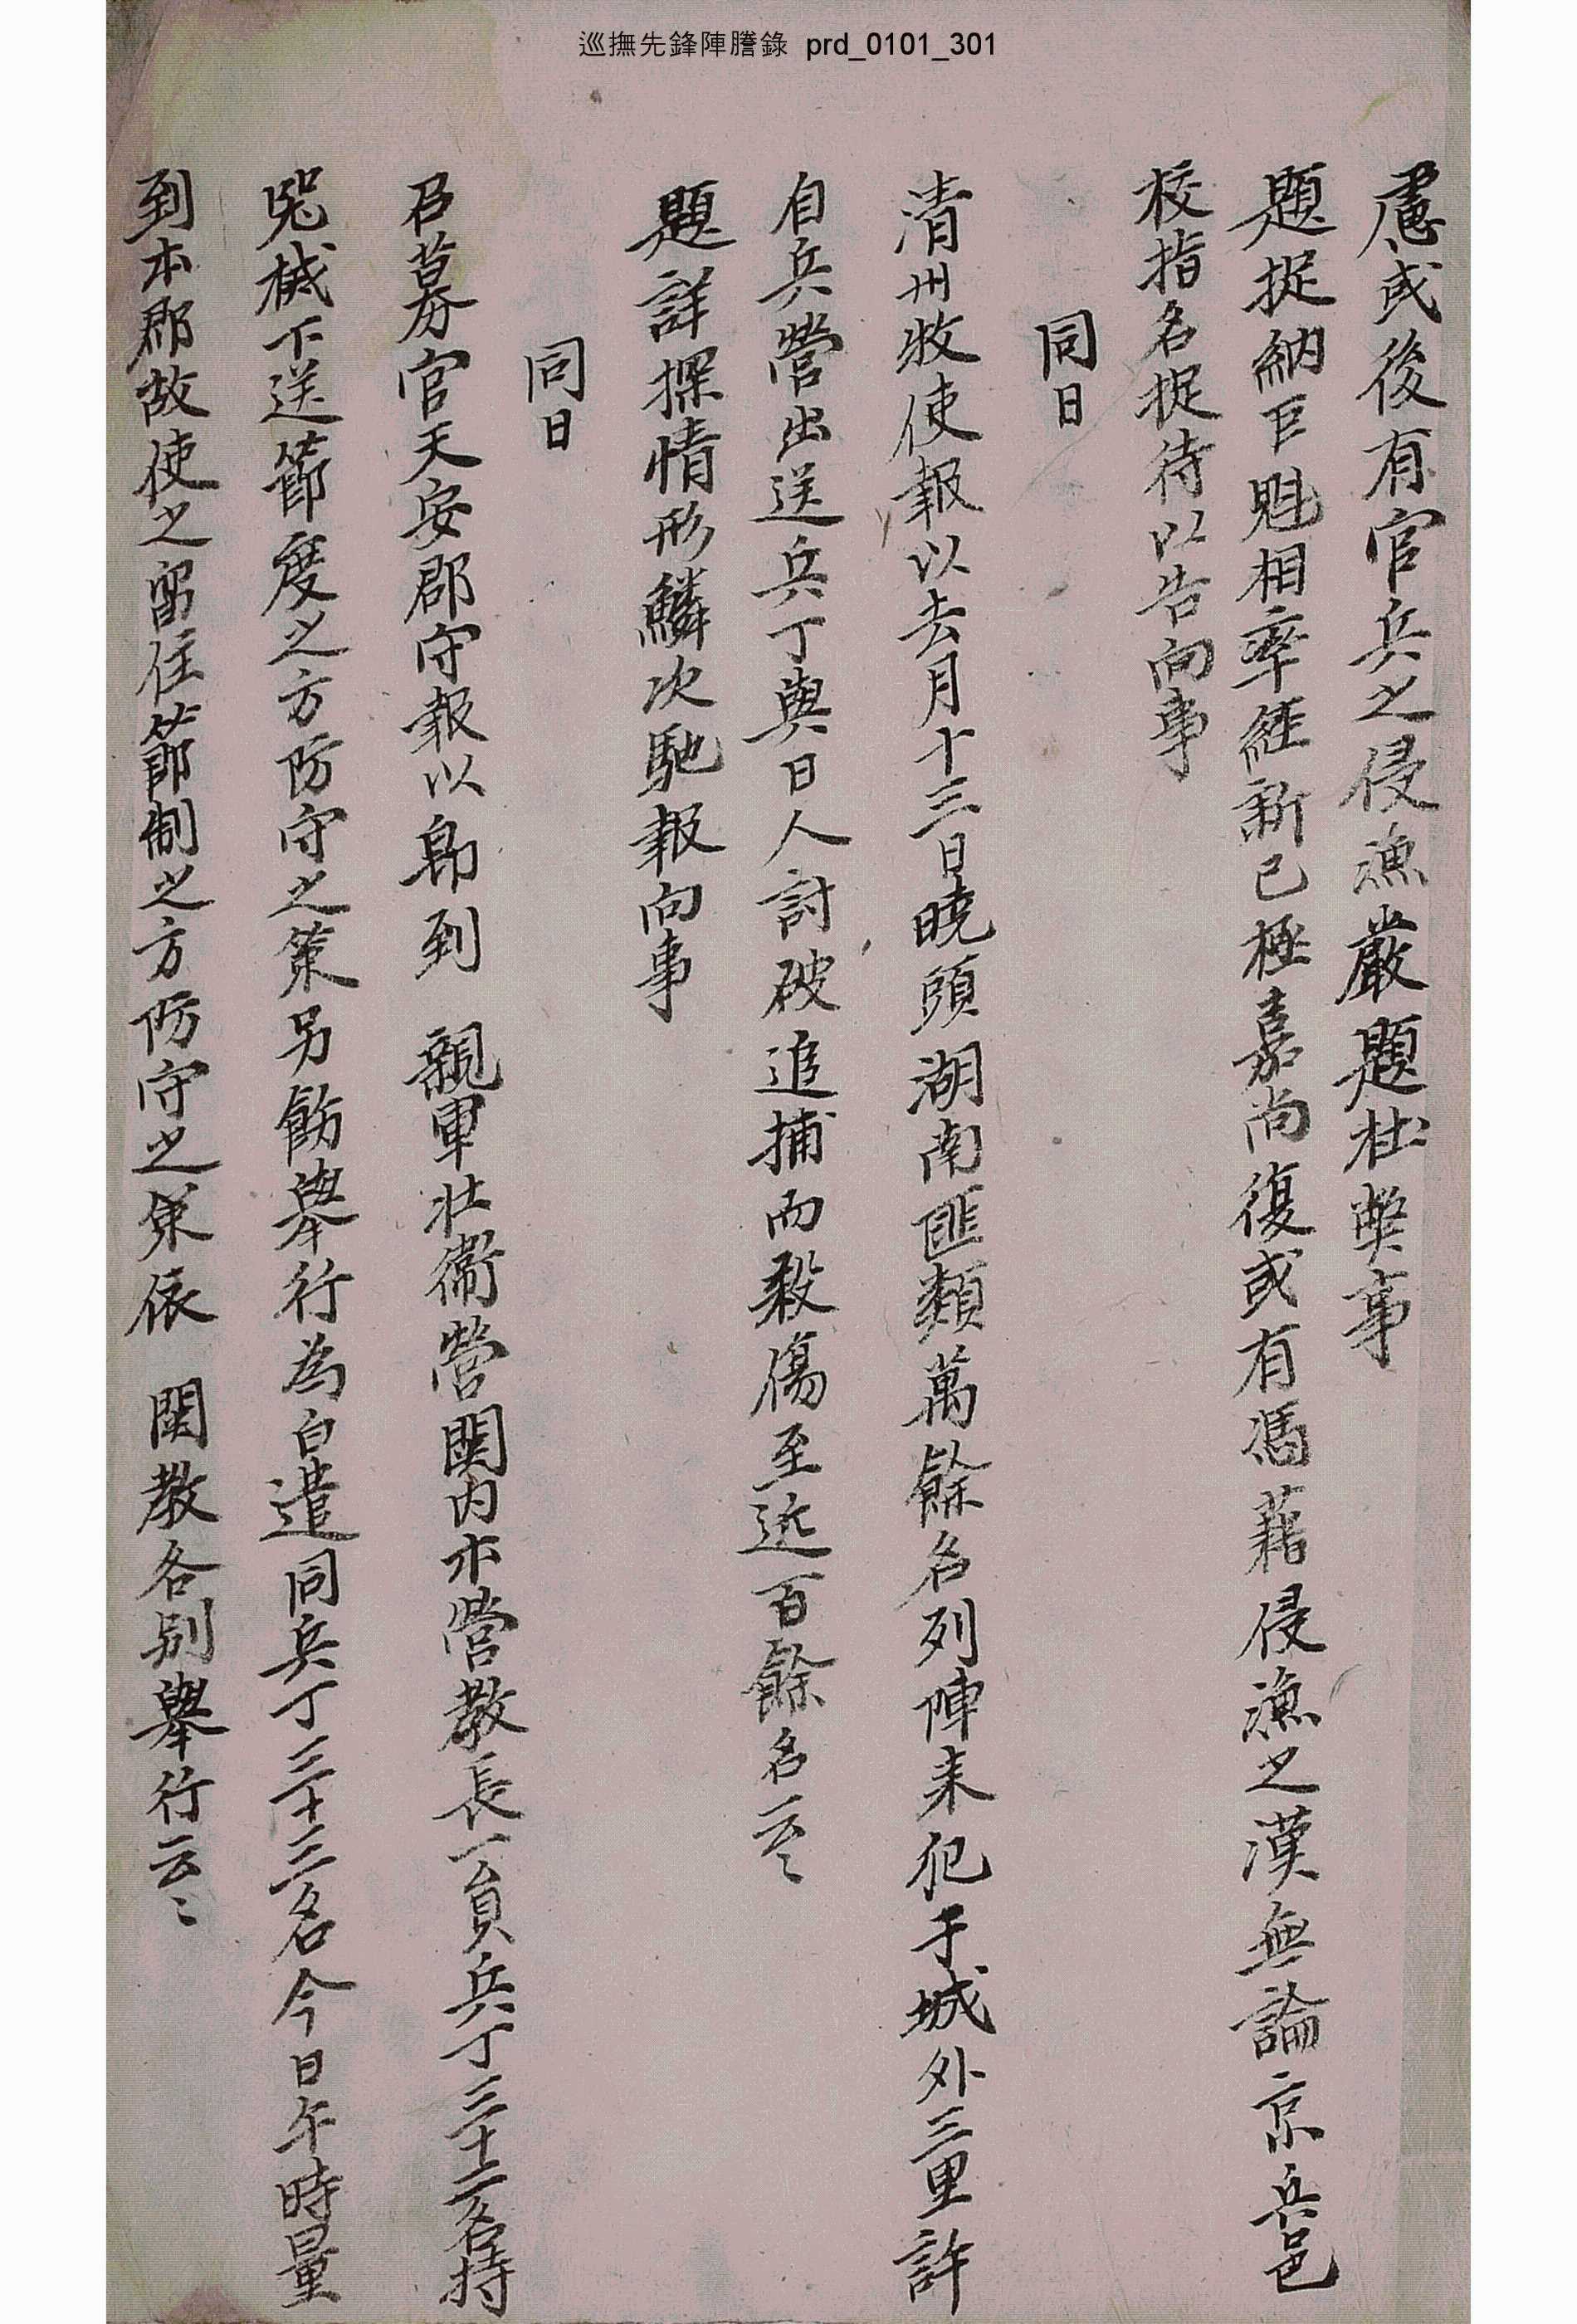 巡撫先鋒陣謄錄 prd_0101_301
慮或後有官兵之侵漁嚴題杜弊事
題捉納巨魁相率經新已極嘉尚復或有馮藉侵漁之漢無論京兵邑
校指名捉待以告向事
同日
清州牧使報以去月十三日曉頭湖南匪類萬餘名列陣來犯于城外三里許
自兵營出送兵丁與日人討破追捕而殺傷至近百餘名云〻
題詳探情形鱗次馳報向事
同日
召募官天安郡守報以卽到 親軍壯衛營關內亦營教長一員兵丁三十二名持
兇械下送節度之方防守之策另飭擧行為白遣同兵丁三十三名今日午時量
到本郡故使之留住節制之方防守之策依 關教各別擧行云〻